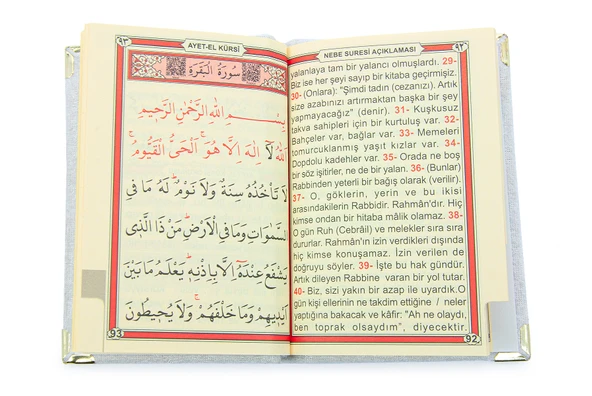 ٩٣
AYET-EL KÜRSİ
سُورَةُ الْبَقَرَةِ
بِسْمِ اللّٰهِ الرَّحْمٰنِ الرَّحٖيمِ
اَللّٰهُ لَٓا اِلٰهَ اِلَّا هُوَۚ اَلْحَيُّ الْقَيُّومُۚ
لَا تَأْخُذُهُ سِنَةٌ وَلَا نَوْمٌۜ لَهُ مَا فِي
السَّمٰوَاتِ وَمَا فِي الْاَرْضِۜ مَنْ ذَا الَّذٖي
يَشْفَعُ عِنْدَهُٓ اِلَّا بِاِذْنِهٖۜ يَعْلَمُ مَا بَيْنَ
اَيْدٖيهِمْ وَمَا خَلْفَهُمْۚ وَلَا يُحٖيطُونَ
93
NEBE SURESİ AÇIKLAMASI
٩٢
yalanlaya tam bir yalancı olmuşlardı. 29-
Biz ise her şeyi sayıp bir kitaba geçirmişiz.
30- (Onlara): "Şimdi tadın (cezanızı). Artık
size azabınızı artırmaktan başka bir şey
yapmayacağız" (denir). 31- Kuşkusuz
takva sahipleri için bir kurtuluş var. 32-
Bahçeler var, bağlar var. 33- Memeleri
tomurcuklanmış yaşıt kızlar var. 34-
Dopdolu kadehler var. 35- Orada ne boş
bir söz işitirler, ne de bir yalan. 36- (Bunlar)
Rabbinden yeterli bir bağış olarak (verilir).
37- O, göklerin, yerin ve bu ikisi
arasındakilerin Rabbidir. Rahmân'dır. Hiç
kimse ondan bir hitaba mâlik olamaz. 38-
O gün Ruh (Cebrâil) ve melekler sıra sıra
dururlar. Rahmân'ın izin verdikleri dışında
hiç kimse konuşamaz. İzin verilen de
doğruyu söyler. 39- İşte bu hak gündür.
Artık dileyen Rabbine varan bir yol tutar.
40- Biz, sizi yakın bir azap ile uyardık.O
gün kişi ellerinin ne takdim ettiğine / neler
yaptığına bakacak ve kâfir: "Ah ne olaydı,
ben toprak olsaydım", diyecektir.
92